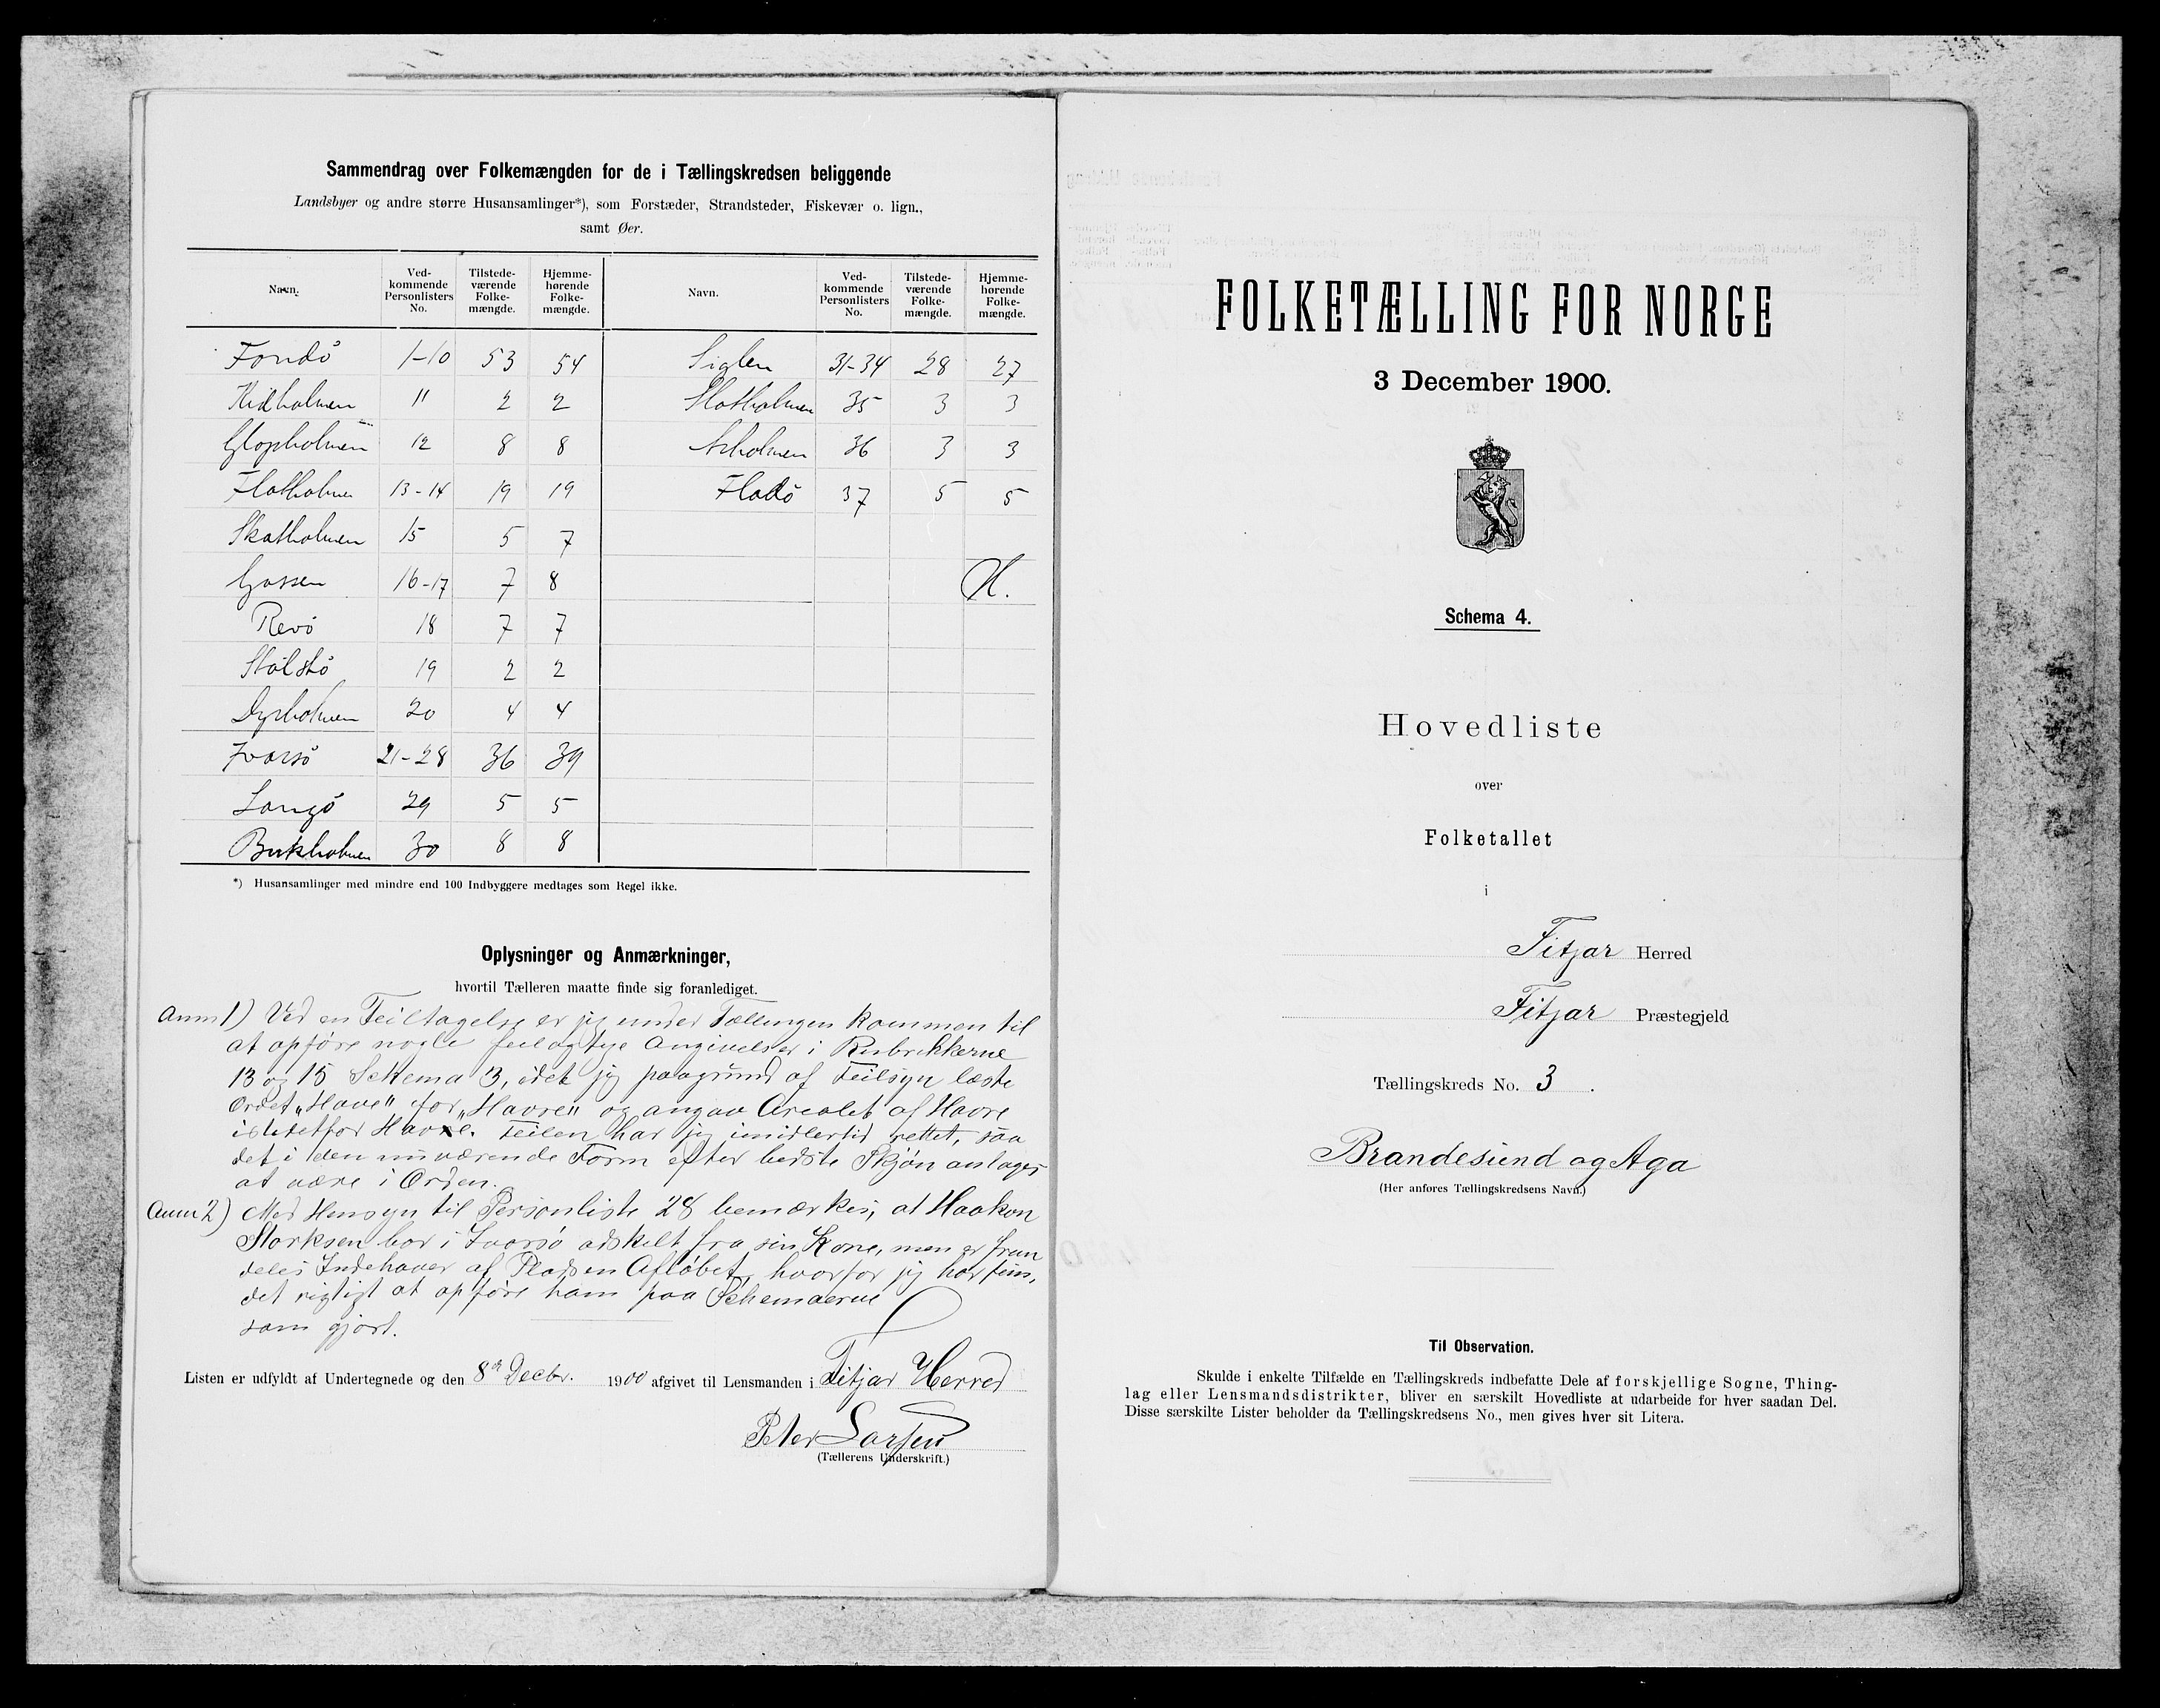 Sammendrag over Folkemængden for de i Tællingskredsen beliggende
Landsbyer og andre større Husansamlinger*), som Forstæder, Strandsteder, Fiskevær o. lign.,
samt Øer.
Navn. Ved-kommende Personlisters No. Tilstede-værende Folke-mængde. Hjemme-hørende Folke-mængde. Navn. Ved-kommende Personlisters No. Tilstede-værende Folke-mængde. Hjemme-hørende Folke-mængde.
Fondö 1-10 53 54 Siglen 31-34 28 27
Kidholmen 11 2 2 Slotholmen 35 3 3
Glopholmen 12 8 8 36 3 3
Flatholmen 13-14 19 19 Flatö 37 5 5
Skatholmen 15 5 7
Gassen 16-17 7 8 H.
Revö 18 7 7
Stölsö 19 2 2
Dyrholmen 20 4 4
Ivarsö 21-28 36 39
Langö 29 5 5
Bukholmen 30 8 8
*) Husansamlinger med mindre end 100 Indbyggere medtages som Regel ikke.
Oplysninger og Anmærkninger,
hvortil Tælleren maatte finde sig foranlediget.
Anm 1) Ved en Feiltagelse er jeg under Tællingen kommen til
at opföre nogle feilagtige Angivelser i Rubrikkerne
13 og 15 Schema 3, idet jeg paagrund af Feilsyn læste
Ordet „Have" for „Havre" og angav Arealet af Havre
istedetfor Have. Feilen har jeg imidlertid rettet, saa
det i den nuværende Form efter bedste Skjön antages
at være i Orden.
Anm 2) Med Hensyn til Personliste 28 bemærkes, at Haakon
Storksen bor i Ivarsö adskilt fra sin Kone, men er frem
deles Indehaver af Pladsen Aflöbet, hvorfor jeg har fun,
det rigtigt at opföre ham paa Schemaerne
som gjort.
Listen er udfyldt af Undertegnede og den 8de Decbr. 1900 afgivet til Lensmanden i Fitjar Herred
Peter Larsen
(Tællerens Underskrift.)
FOLKETÆLLING FOR NORGE
3 December 1900.
Schema 4.
Hovedliste
over
Folketallet
i
Fitjar Herred
Fitjar Præstegjeld
Tællingskreds No. 3.
Brandesund og Aga
(Her anføres Tællingskredsens Navn.)
Til Observation.
Skulde i enkelte Tilfælde en Tællingskreds indbefatte Dele af forskjellige Sogne, Thing-
lag eller Lensmandsdistrikter, bliver en særskilt Hovedliste at udarbeide for hver saadan Del.
Disse særskilte Lister beholder da Tællingskredsens No., men gives hver sit Litera.